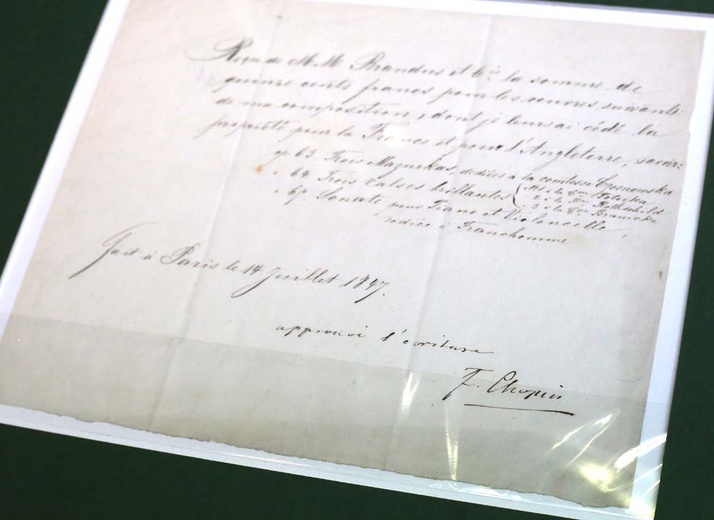 Reçu de M.M. Brandus et Cie la somme de
cents francs pour les oeuvres suivants
de ma composition, dont je leurs ai cédé la
propriété pour la France et pour l'Angleterre, savoir:
op 63. Trois Mazurkas dédiées à la comtesse Czosnowska
" 64. Trois Valses brillantes
No 1 à la Csse Potocka
2 à la Bne Rothschild
3 à la Csse Branicka
" 65. Sonate pour Piano et Violoncelle,
dédiée à Franchomme
Fait à Paris le 14 Juillet 1847.
approuvé l'écriture
F. Chopin